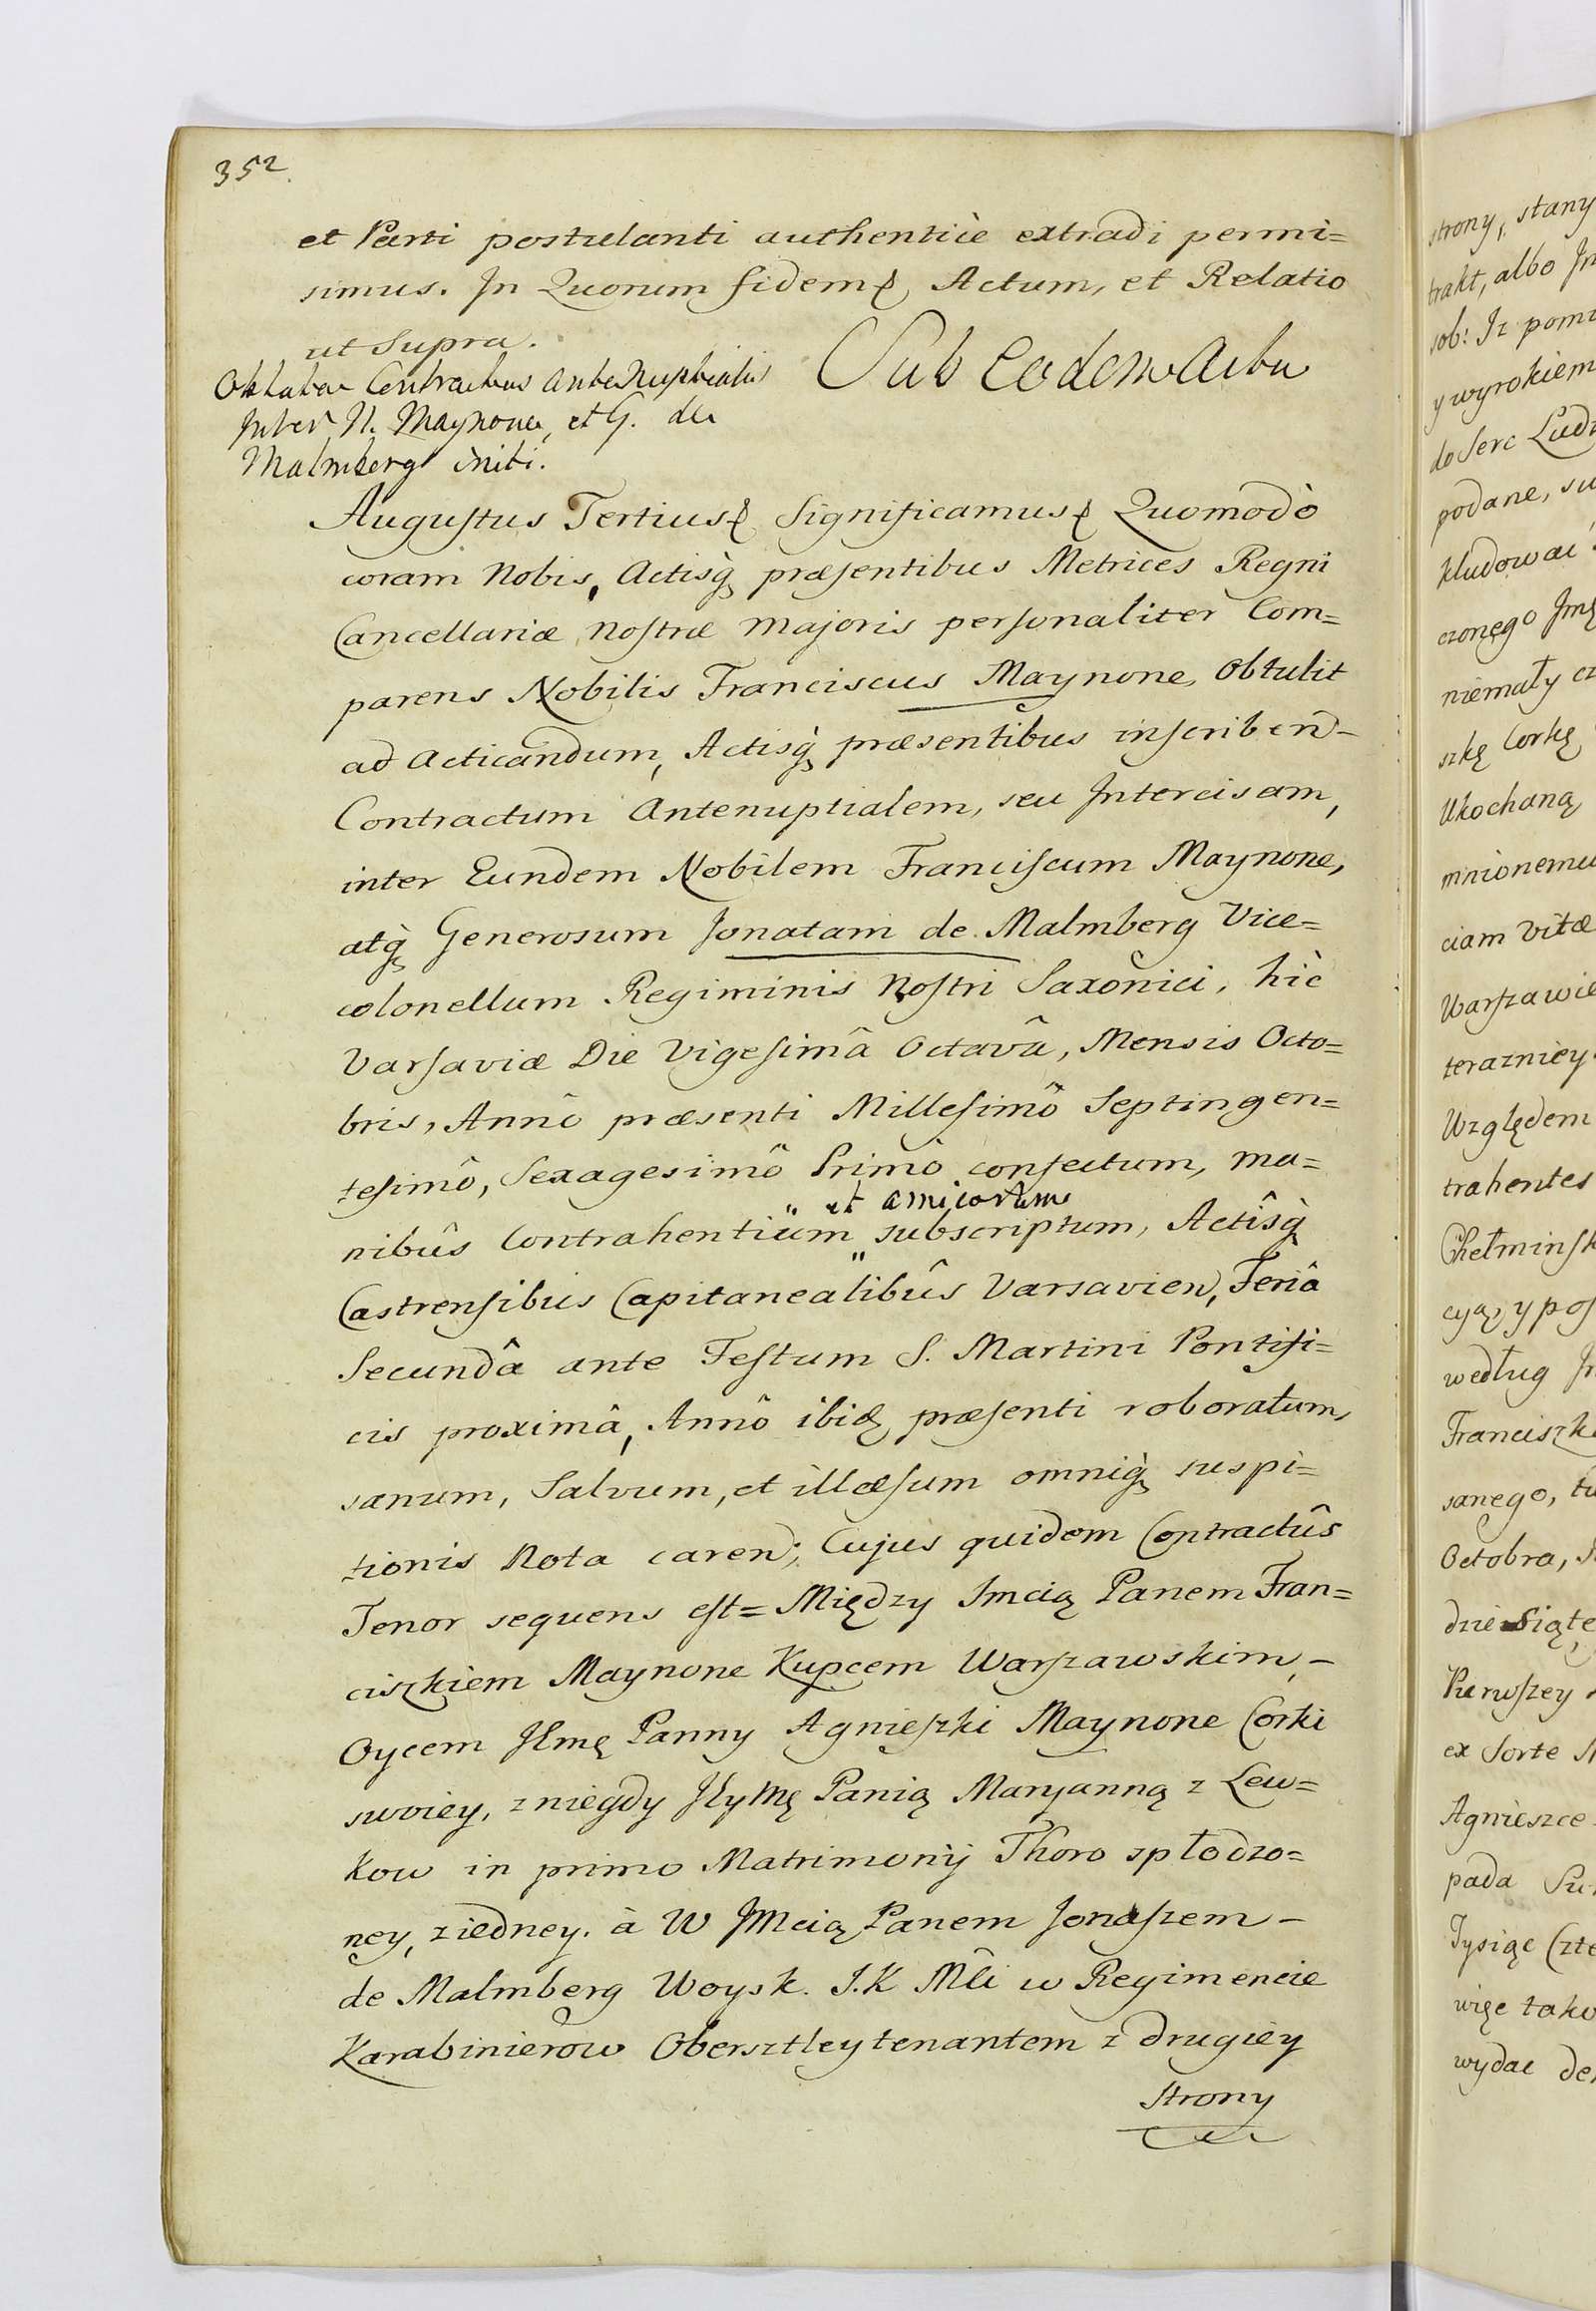 352.
et Parti postulanti authenticè extradi permi=
simus. In Quorum fidem Actum, et Relatio
ut Supra.
Sub Eodem Actu
Oblata Contractus Antenuptialis
Inter N. Maynone, et G. de
Malmberg initi.
Augustus Tertius Significamus Quomodò
coram Nobis, Actisq́ præsentibus Metrices Regni
Cancellariæ Nostræ Majoris personaliter Com=
parens Nobilis Franciscus Maynone, Obtulit
ad Acticandum, Actisq́ præsentibus inscribend-
Contractum Antenuptialem, seu Intercisam,
inter Eundem Nobilem Franciscum Maynone,
atq́ Generosum Jonatam de Malmberg Vice=
colonellum Regiminis Nostri Saxonici, hìc
Varsaviæ Die Vigesimâ Octavâ, Mensis Octo=
bris, Annô præsenti Millesimô Septingen=
tesimô, Sexagesimô Primô confectum, ma=
et amicorum
nibûs Contrahentium subscriptum, Actîsq́
Castrensibus Capitanealibûs Varsavien, Feriâ
Secundâ ante Festum S. Martini Pontifi=
cis proximâ, Annô ibid præsenti roboratum,
sanum, Salvum, et illæsum omniq́ suspi=
tionis Nota caren; Cujus quidem Contractûs
Tenor sequens est= Między Imcią Panem Fran=
ciszkiem Maynone Kupcem Warszawskim,-
Oycem JEmę Panny Agnieszki Maynone Corki
swoiey, z niegdy JEyMę Panią Maryanną z Lew=
kow in primo Matrimonij Thoro spłodzo=
ney, z iedney. à W JMcią Panem Jonaszem-
de Malmberg Woysk. J.K Mći w Regimencie
Karabinierow Obersztleytenantem z drugiey
Strony
strony, stany
trakt, albo In
sob: Iż pom
y wyrokiem
do Serc Ludz
podane, su
kludować
czonego Jmę
niemały cz
szkę Corkę
Ukochaną
mnionemu
ciam Vitæ
Warszawie
terazniey
Względem
trahentes
Chełminsk
cyą, y pos
według
Franciszk
sanego, tu
Octobra,
dziesiąte
Pierwszey
ex Sorte
Agnieszce
pada Su
Tysiąc Czte
więc tako
wydac de